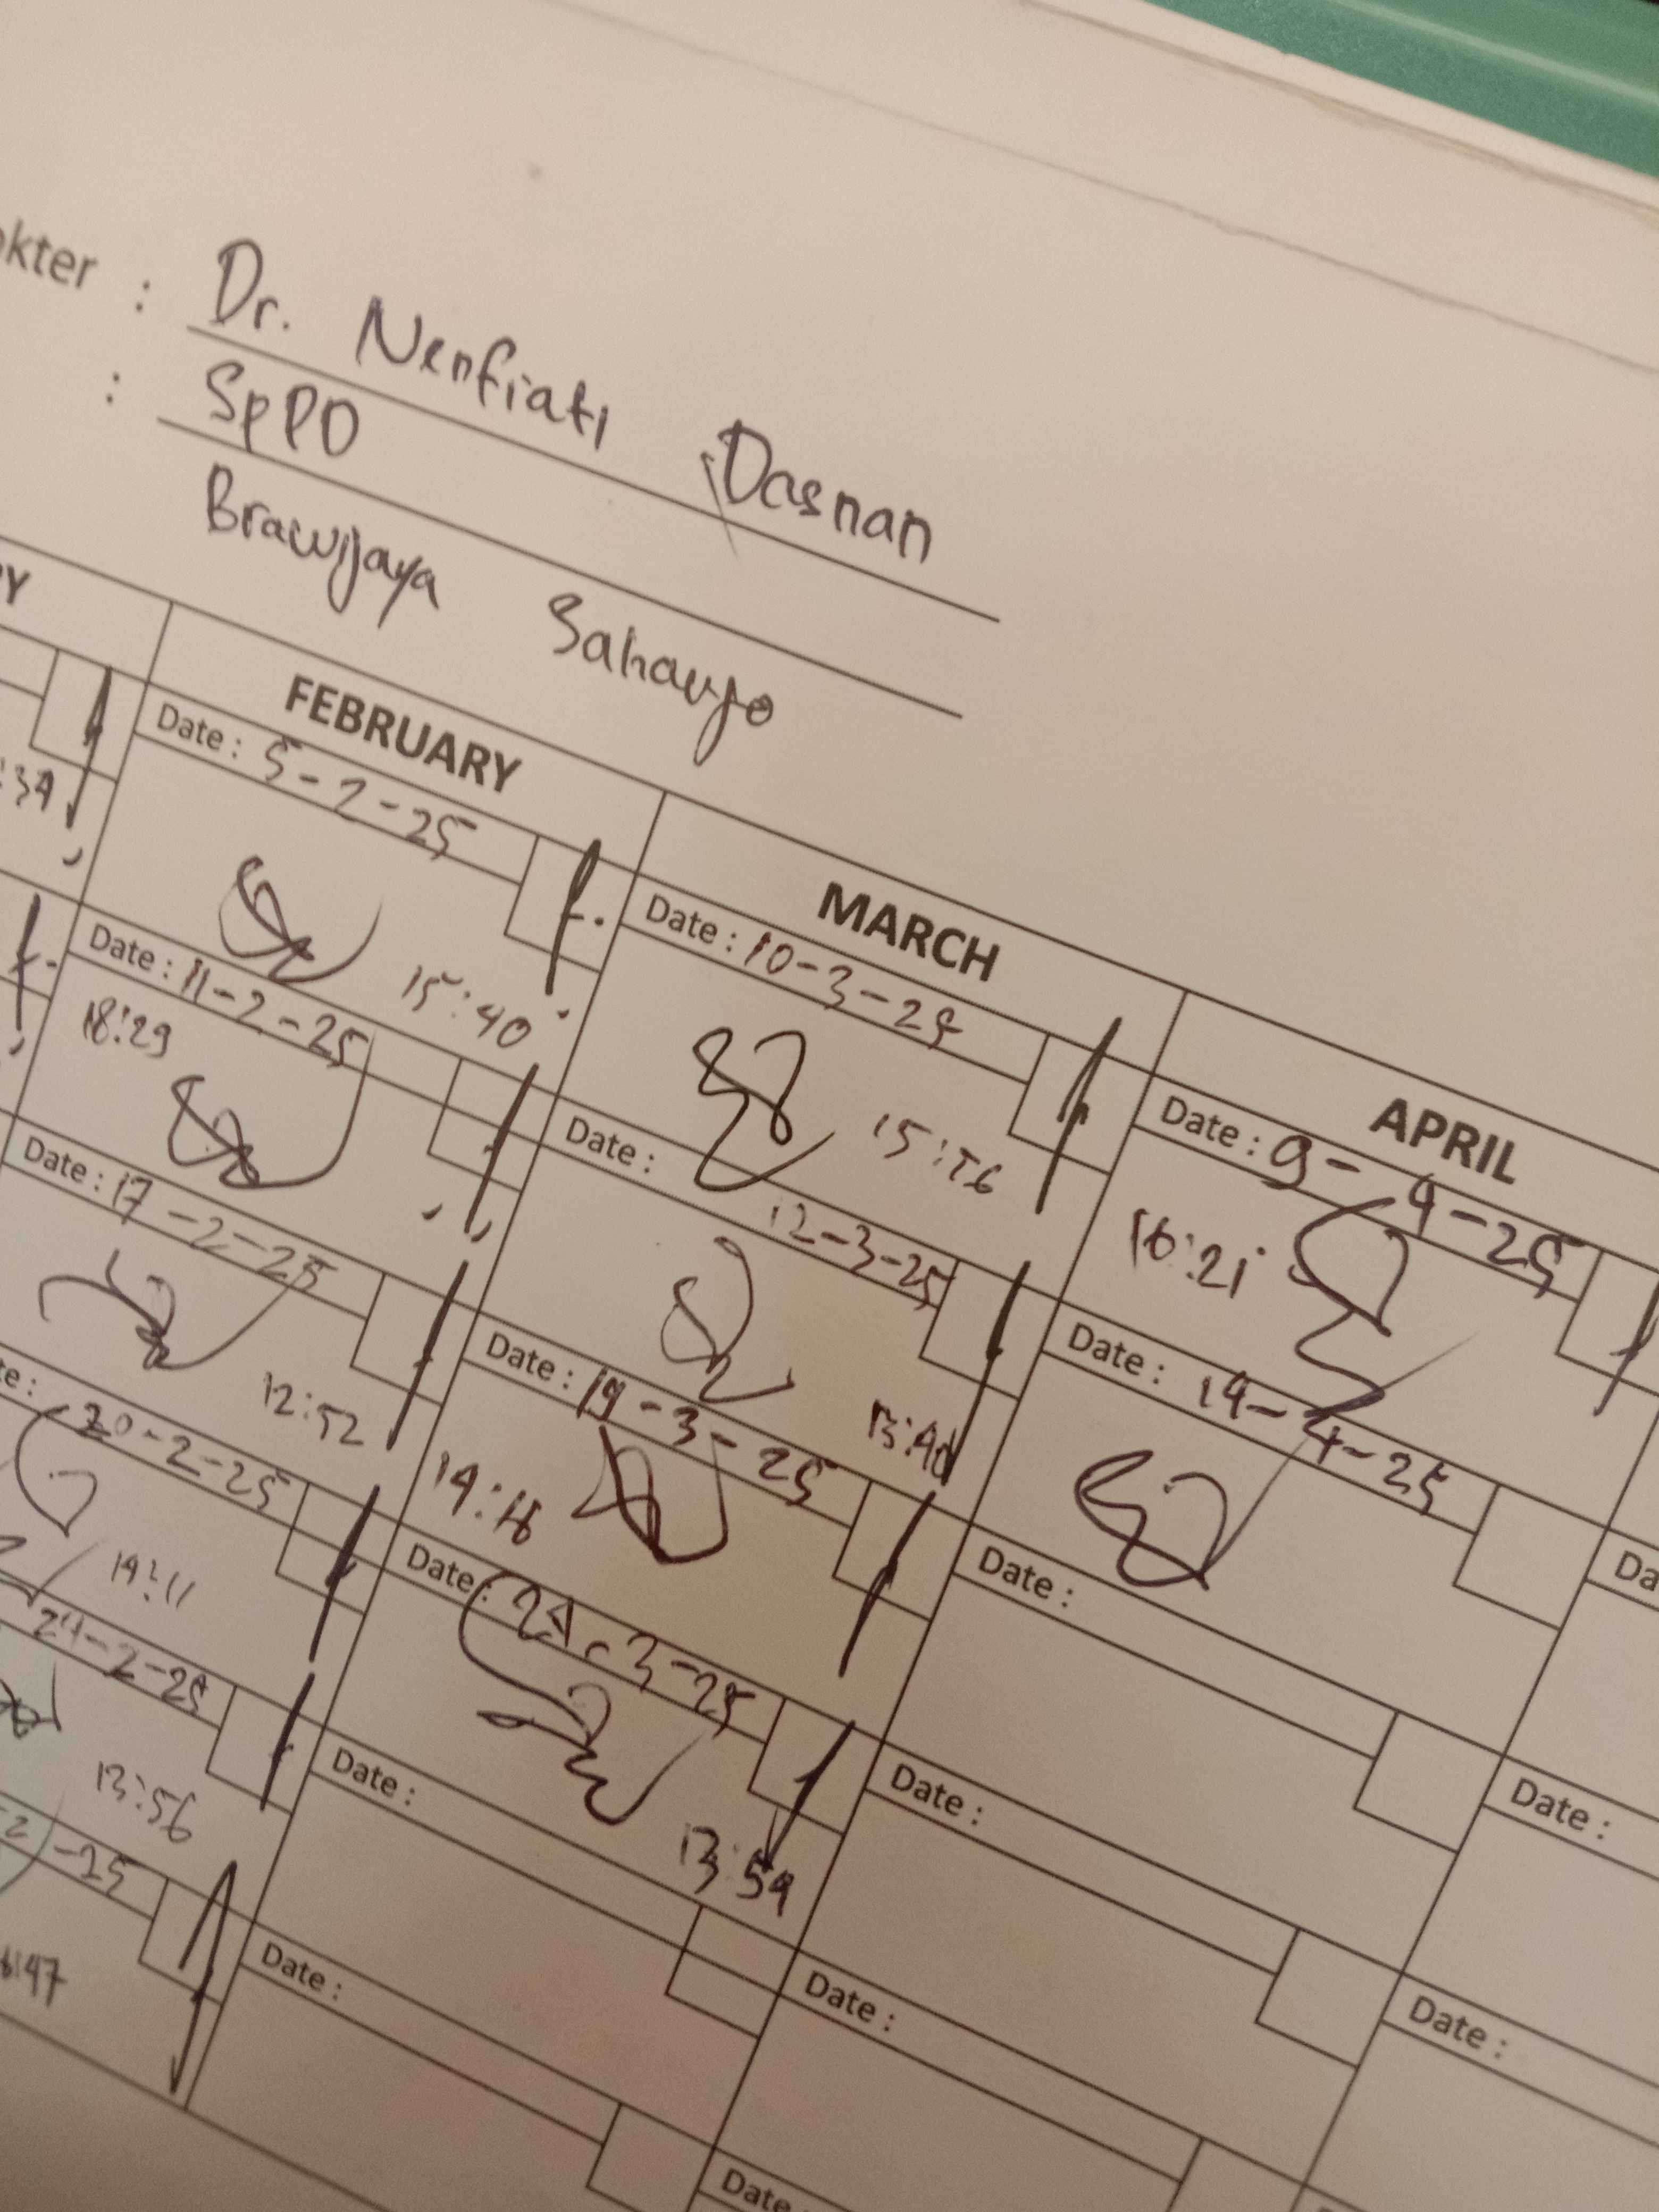 okter : Dr. Nenfiati Dasnan
: SpPD
Brawijaya Saharjo
FEBRUARY
Date : 5-2-25
15:40
Date : 11-2-25
18:29
Date : 17-2-25
12:52
20-2-25
14:11
24-2-25
13:56
-25
MARCH
Date : 10-3-25
Date : 12-3-25
13:40
Date : 19-3-25
14:18
Date : 24-3-25
13:59
Date :
Date :
APRIL
Date : 9-4-25
16:21
Date : 14-4-25
Date :
Date :
Date :
Date :
Date :
Date :